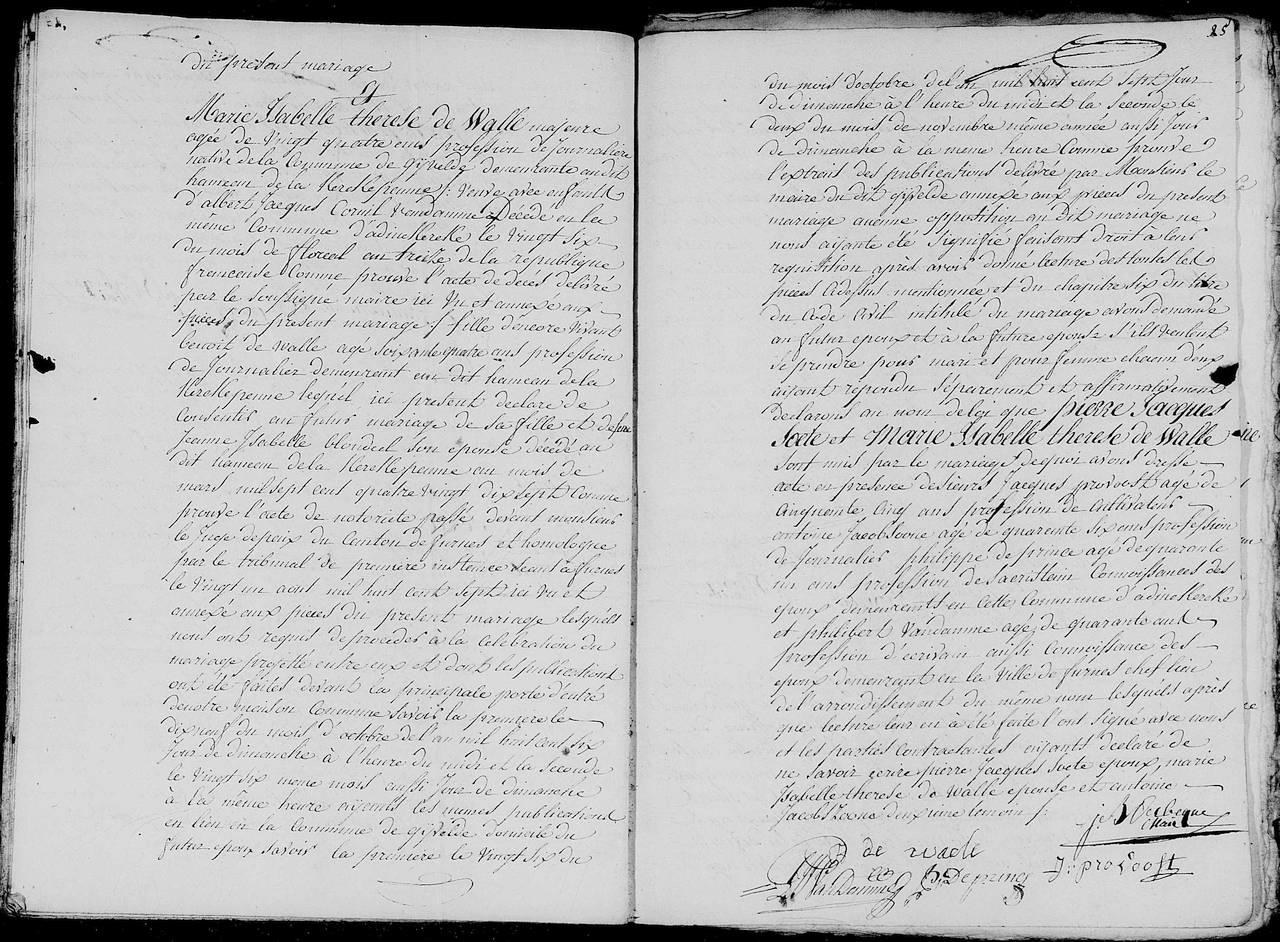 du present mariage
Et
Marie Isabelle therese de Walle majeure
agée de Vingt quatre ans profession de Journalière
native de la Commune de Gijvelde demeurante au dit
hameau de la Kerckepenne /: Veuve avec enfants
d'albert Jacques Cornil Vandamme Décédé en la
même Commune d'adinkerke le Vingt six
du mois de floreal an treize de la republique
francoise Comme prouve l'acte de decés delivré
par le soussigné maire ici Vu et annexé aux
pieces du present mariage / fille d'encore vivant
benoit de Walle agé soixante quatre ans profession
de Journalier demeurant au dit hameau de la
Kerckepenne lequél ici present declare de
Consentir au futur mariage de sa fille et de feue
Jeanne Isabelle blondeel son epouse décédé au
dit hameau de la Kerckepenne au mois de
mars mil sept cens quatre vingt dix sept Comme
prouve l'acte de notorieté passé devant monsieur
le Juge de paix du Canton de furnes et homologué
par le tribunal de première instance seant a furnes
le vingt un aout mil huit cent sept ici vu et
annexé aux pieces du present mariage lesquéls
nous ont requis de proceder a la Celebration du
mariage projetté entre eux et dont les publications
ont été faites devant la principale porte d'entré
de notre maison Commune savoir la premiere le
dix neuf du mois d'octobre de l'an mil huit cent six
Jour de dimanche à l'heure du midi et la seconde
le Vingt six meme mois aussi Jour de dimanche
à la même heure aijants les memes publications
eu lieu en la Commune de gijvelde domicile du
futur epoux savoir la première le Vingt six du
25
du mois d'octobre de l'an mil huit cent sept Jour
de dimanche à l'heure du midi et la seconde le
deux du mois de novembre même année aussi Jour
de dimanche à la meme heure Comme prouve
l'extrait des publications delivré par Monsieur le
maire du dit gijvelde annexé aux pieces du present
mariage aucune oppostition au dit mariage ne
nous aijante été signifié faisant droit à leur
requisition après avoir donné lecture de toutes les
pieces Cidessus mentionnée et du chapitre six du titre
du Code Civil intitulé du mariage avons demandé
au futur epoux et à la future epouse s'ils veulent
se prendre pour mari et pour femme chacun d'eux
aijant repondu separement et affirmativement
declarons au nom de loi que pierre Jacques
Soete et Marie Isabelle therese de Walle
sont unis par le mariage de quoi avons dressé
acte en presence des sieurs Jacques provoost agé de
Cinquante Cinq ans profession de Cultivateur
antoine Jacobsoone agé de quarente six ans profession
de Journalier philippe de prince agé de quarante
un ans profession de sacristein Connoissances des
epoux demeurants en cette Commune d'adinckerke
et philibert Vandamme agé de quarante ans
profession d'ecrivain aussi Connoissance des
epoux demeurant en la Ville de furnes chef lieu
de l'arrondissement du même nom lesquéls après
que lecture leur en a été faite l'ont signé avec nous
et les parties Contractantes aijants declaré de
ne savoir ecrire pierre Jacques soete epoux, marie
Isabelle therese de Walle epouse et antoine
Jacobszoone deuxieme temoin /:
maire
de waele
J: provoost